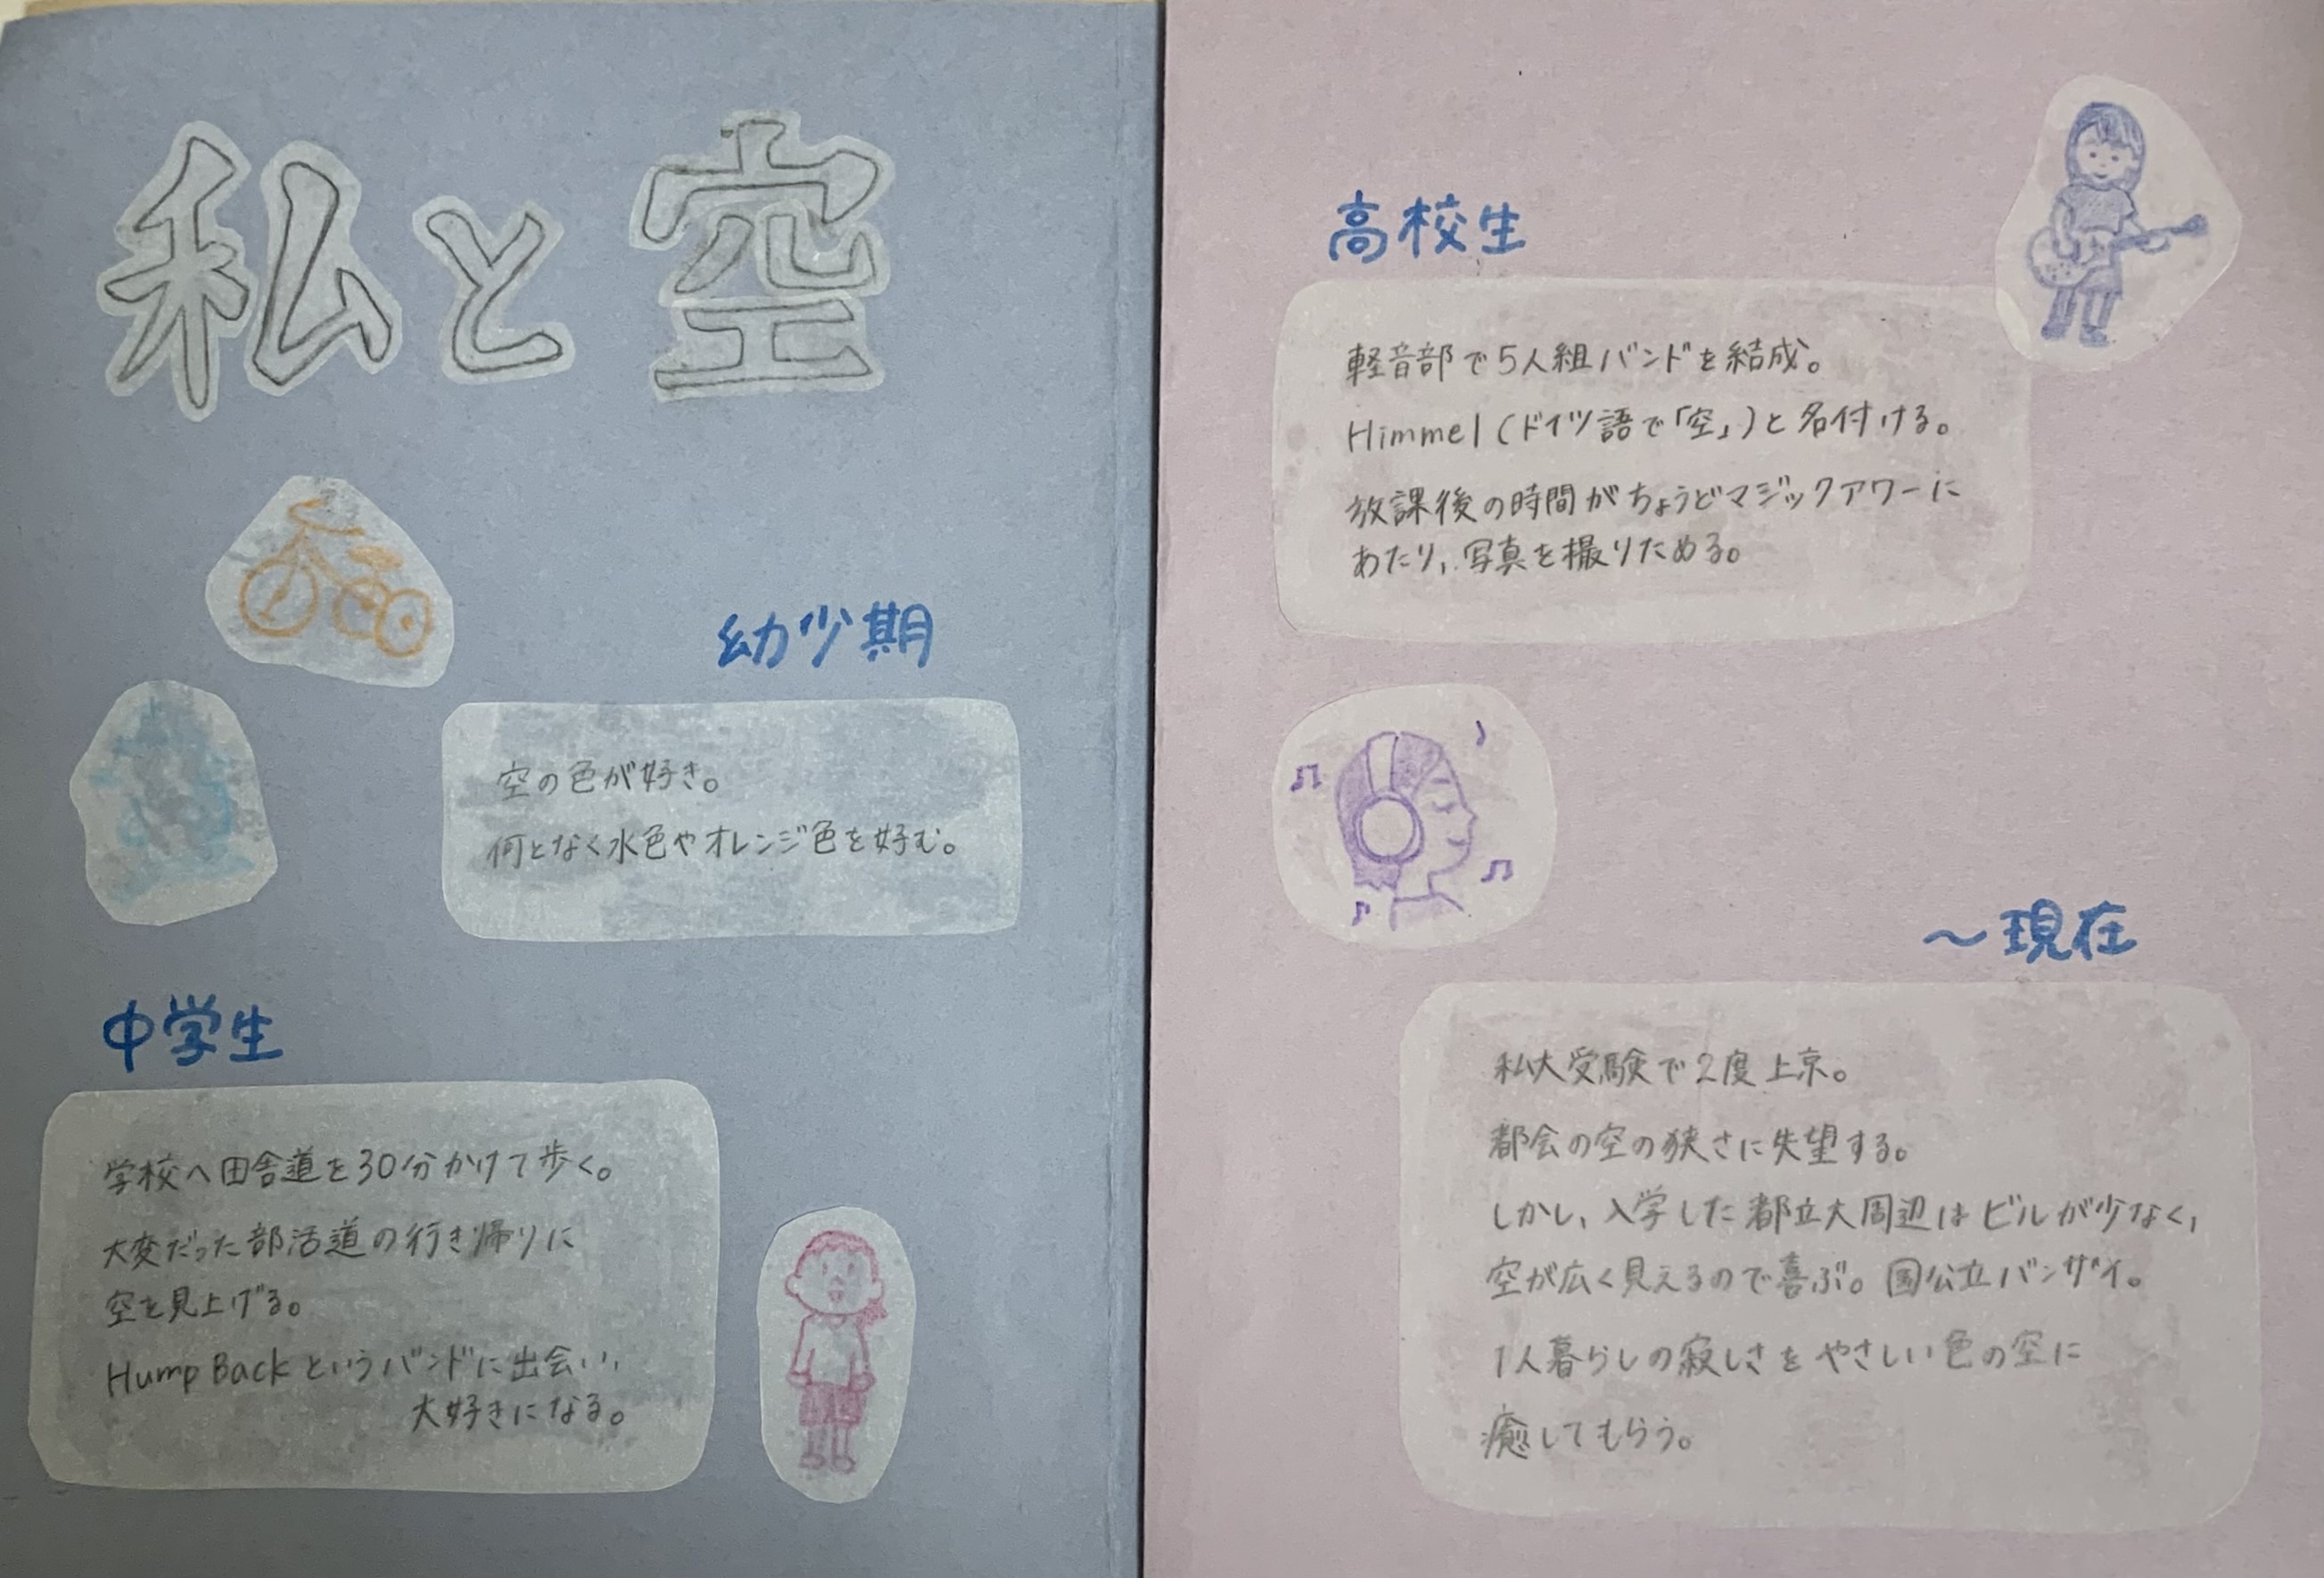 私と空
幼少期
空の色が好き。
何となく水色やオレンジ色を好む。
中学生
学校へ田舎道を30分かけて歩く。
大変だった部活道の行き帰りに
空を見上げる。
Hump Backというバンドに出会い、
大好きになる。
高校生
軽音部で5人組バンドを結成。
Himmel(ドイツ語で「空」)と名付ける。
放課後の時間がちょうどマジックアワーに
あたり、写真を撮りためる。
～現在
私大受験で2度上京。
都会の空の狭さに失望する。
しかし、入学した都立大周辺はビルが少なく、
空が広く見えるので喜ぶ。国公立バンザイ。
1人暮らしの寂しさをやさしい色の空に
癒してもらう。